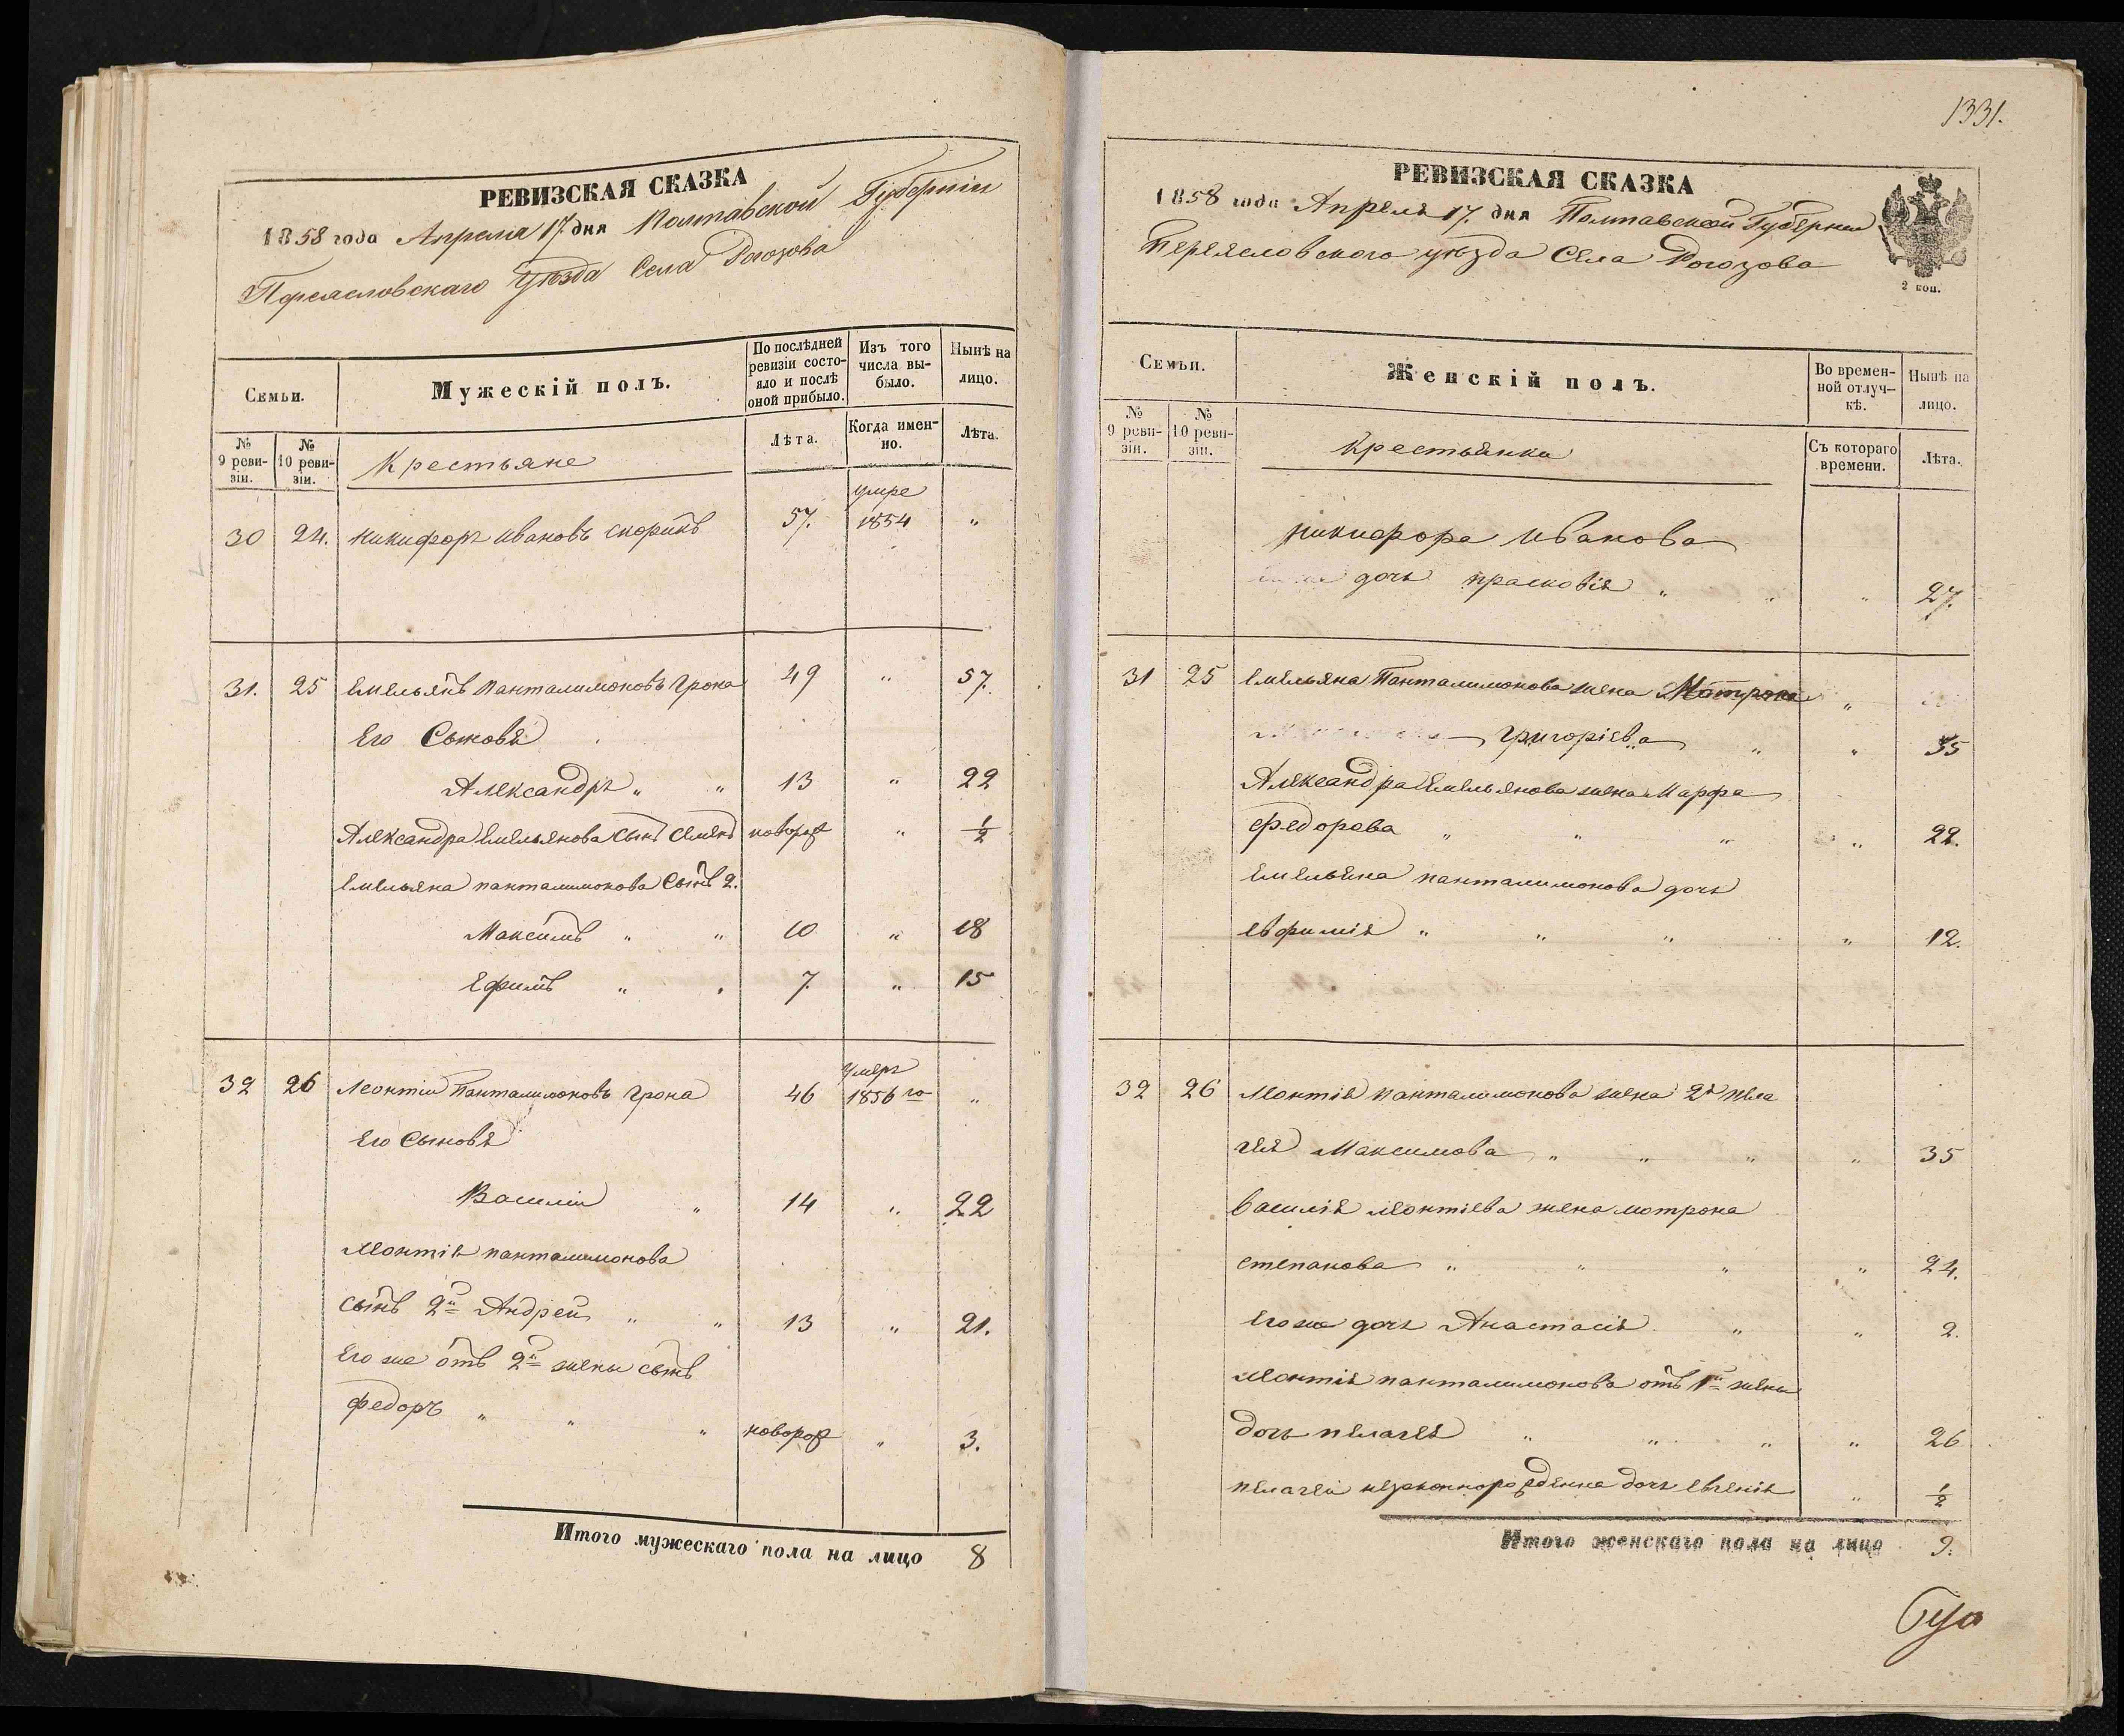 РЕВИЗСКАЯ СКАЗКА
1858 года Апреля 17. дня Полтавской Губерніи
Переясловскаго Уѣзда Села Рогозова
Семьи.
Мужескій полъ.
По послѣдней ревизіи состо-
яло и послѣ
оной прибыло.
Изъ того
числа вы-
было.
Нынѣ на
лицо.
№
9 реви-
зіи.
№
10 реви-
зіи.
Крестьяне
Лѣта.
Когда имен-
но.
Лѣта.
умре
30 24. никифоръ ивановъ скорикъ 57. 1854 "
31. 25 Емельянъ Панталимоновъ Грона 49 " 57.
Его Сыновя
Александръ " " 13 " 22
Александра Емельянова Сынъ Семенъ новорож " 1/2
Емельяна панталимонова Сынъ 2.
Максимъ " " 10 " 18
Ефимъ " " 7. " 15
умеръ
32 26 Леонтій Панталимоновъ Грона 46 1856 го "
Его Сыновя
Василій " 14 " 22
Леонтія панталимонова
сынъ 2й Андрей " " 13 " 21.
Его же отъ 2й жены сынъ
федоръ " " " новорож " 3.
Итого мужескаго пола на лицо 8
1331.
РЕВИЗСКАЯ СКАЗКА
1858 года Апреля 17. дня Полтавской Губернии
Переясловского уѣзда Села Рогозова
2 коп.
Семьи.
Женскій полъ.
Во времен-
ной отлуч-
кѣ.
Нынѣ на
лицо.
№
9 реви-
зіи.
№
10 реви-
зіи.
Крестьянки
Съ котораго
времени.
Лѣта.
никифора Иванова
дочь прасковія " " " 27.
31 25 Емельяна Панталимонова жена Мотрона "
Григоріева " " 35
Александра Емельянова жена Марфа
Федорова " " " " 22.
Емельяна панталимонова дочь
евфимія " " " " 12.
32 26 Леонтія панталимонова жена 2я пела
гея Максимова " " " " 35
василія леонтіева жена мотрона
степанова " " " " 24.
Его же дочь Анастасія " " 2.
Леонтія панталимонова отъ 1й жены
дочь пелагея " " " " 26
пелагеи незаконнорожденна дочь евгенія " 1/2
Итого женскаго пола на лицо 9.